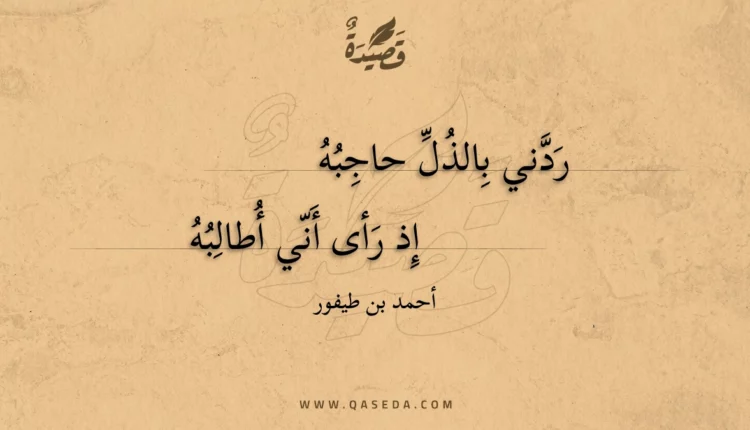 قَصِيْدَةٌ
رَدَّني بِالذُلِّ حاجِبُهُ
إِذ رَأى أَنّي أُطالِبُهُ
أحمد بن طيفور
WWW.QASEDA.COM